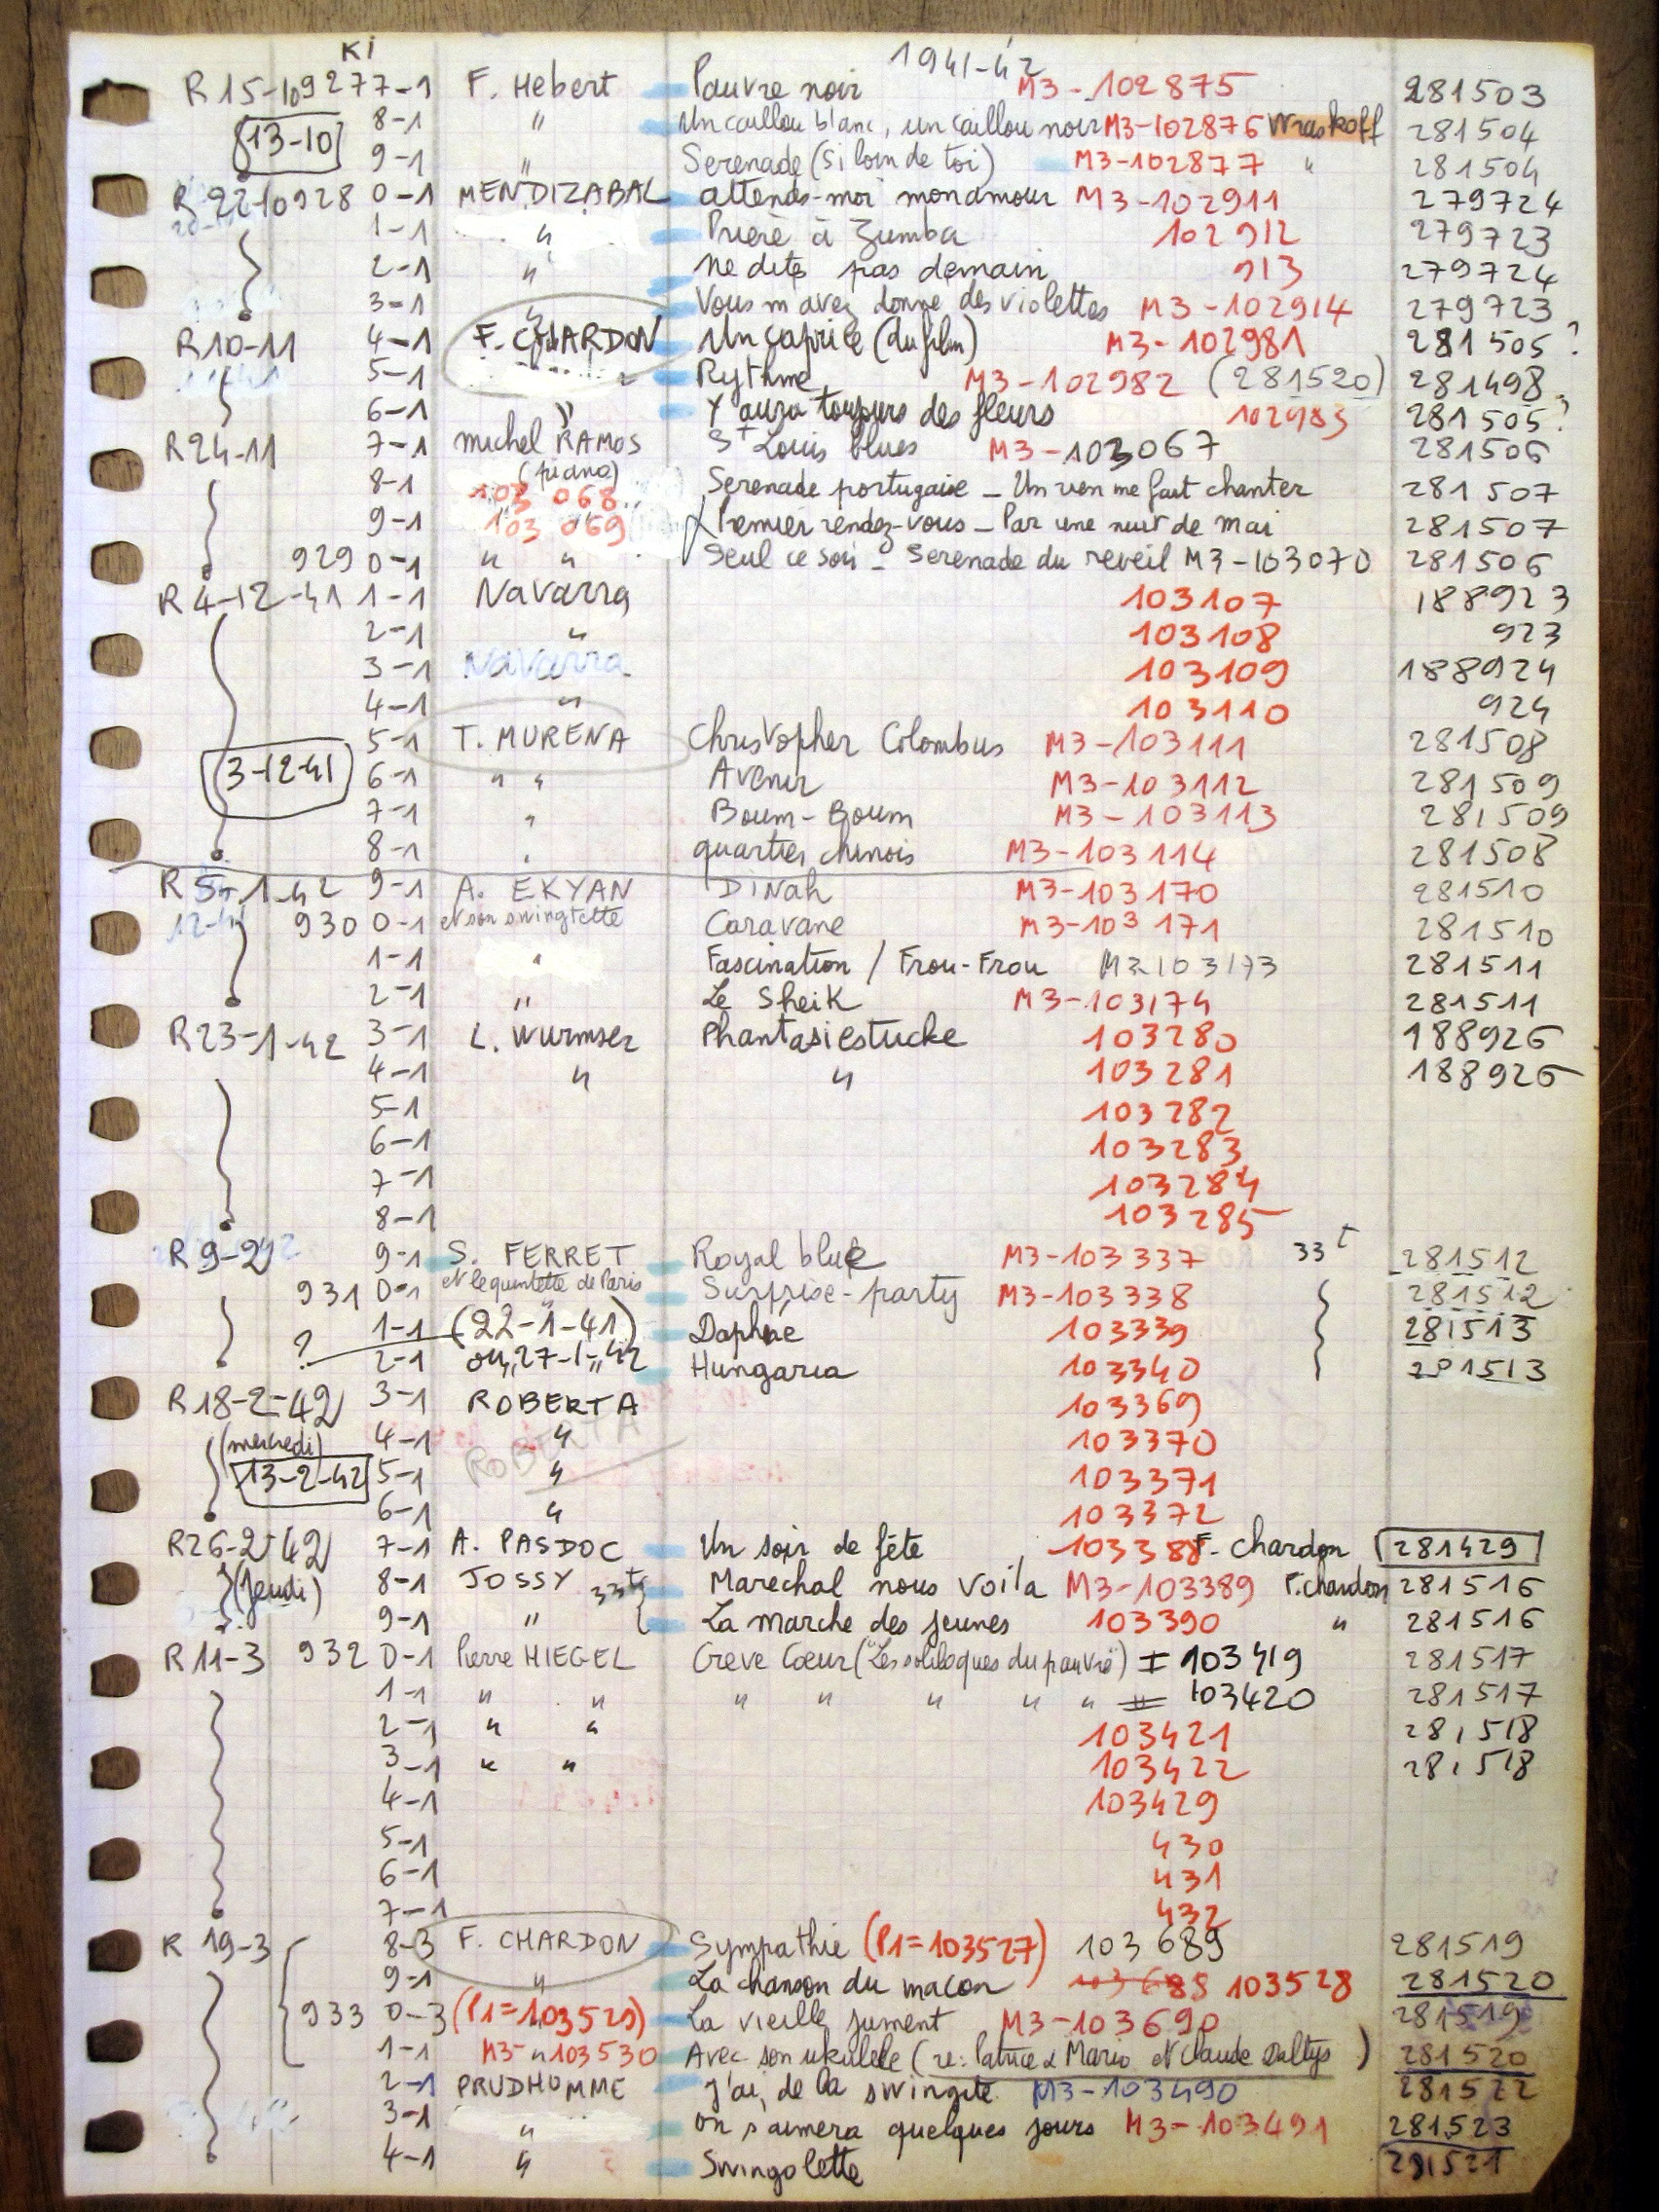 KI 1941-42
R 15-10 9277-1 F. Hebert Pauvre noir M3-102875 281503
8-1 " Un caillou blanc, un caillou noir M3-102876 Wraskoff 281504
13-10
9-1 " Serenade (si loin de toi) M3-102877 " 281504
R 22-10 928 0-1 MENDIZABAL attends-moi mon amour M3-102911 279724
1-1 " Prière à Zumba 102912 279723
2-1 " Ne dites pas demain 913 279724
3-1 " Vous m'avez donné des violettes M3-102914 279723
R10-11 4-1 F. CHARDON Un caprice (du film) M3-102981 281505?
5-1 Rythme M3-102982 (281520) 281498
6-1 " Y aura toujours des fleurs 102983 281505?
R24-11 7-1 Michel RAMOS St Louis blues M3-103067 281506
(piano)
8-1 103 068 Serenade portugaise - Un rien me fait chanter 281507
9-1 103 069 Premier rendez-vous - Par une nuit de mai 281507
929 0-1 " " Seul ce soir - Serenade du reveil M3-103070 281506
R 4-12-41 1-1 Navarra 103107 188923
2-1 " 103108 923
3-1 Navarra 103109 188924
4-1 " 103110 924
5-1 T. MURENA Christopher Colombus M3-103111 281508
3-12-41 6-1 " " Avenir M3-103112 281509
7-1 " Boum-Boum M3-103113 281509
8-1 " quartier chinois M3-103114 281508
R 5-1-42 9-1 A. EKYAN DINAH M3-103170 281510
930 0-1 et son swingtette Caravane M3-103171 281510
1-1 " Fascination / Frou-Frou M3-103173 281511
2-1 " Le Sheik M3-103174 281511
R23-1-42 3-1 L. Wurmser Phantasiestucke 103280 188926
4-1 " " 103281 188926
5-1 103282
6-1 103283
7-1 103284
8-1 103285
R 9-2 9-1 S. FERRET Royal blue M3-103337 33t 281512
931 0-1 et le quintette de Paris Surprise-party M3-103338 281512
? 1-1 (22-1-41) Daphné 103339 281513
2-1 ou 27-1-42 Hungaria 103340 281513
R18-2-42 3-1 ROBERTA 103369
(mercredi) 4-1 " 103370
13-2-42 5-1 " 103371
6-1 " 103372
R26-2-42 7-1 A. PASDOC Un soir de fête 103388 F. Chardon 281429
(Jeudi) 8-1 JOSSY 33t Marechal nous voila M3-103389 F. chardon 281516
9-1 " La marche des jeunes 103390 " 281516
R 11-3 932 0-1 Pierre HIEGEL Creve Coeur ("Les soliloques du pauvre") I 103419 281517
1-1 " " " " " " " II 103420 281517
2-1 " " 103421 281518
3-1 " " 103422 281518
4-1 103429
5-1 430
6-1 431
7-1 432
R 19-3 8-3 F. CHARDON Sympathie (P1=103527) 103689 281519
9-1 " La chanson du macon 103688 103528 281520
933 0-3 (P1=103529) La vieille jument M3-103690 281519
1-1 M3-103530 Avec son ukulele (re: Patrice & Mario et Claude Daltys) 281520
2-1 PRUDHOMME J'ai de la swingite M3-103490 281522
3-1 " on s'aimera quelques jours M3-103491 281523
4-1 " Swingolette 281521